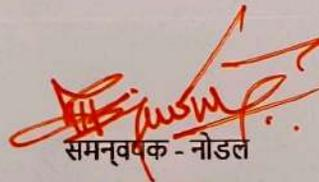 समन्वयक - नोडल